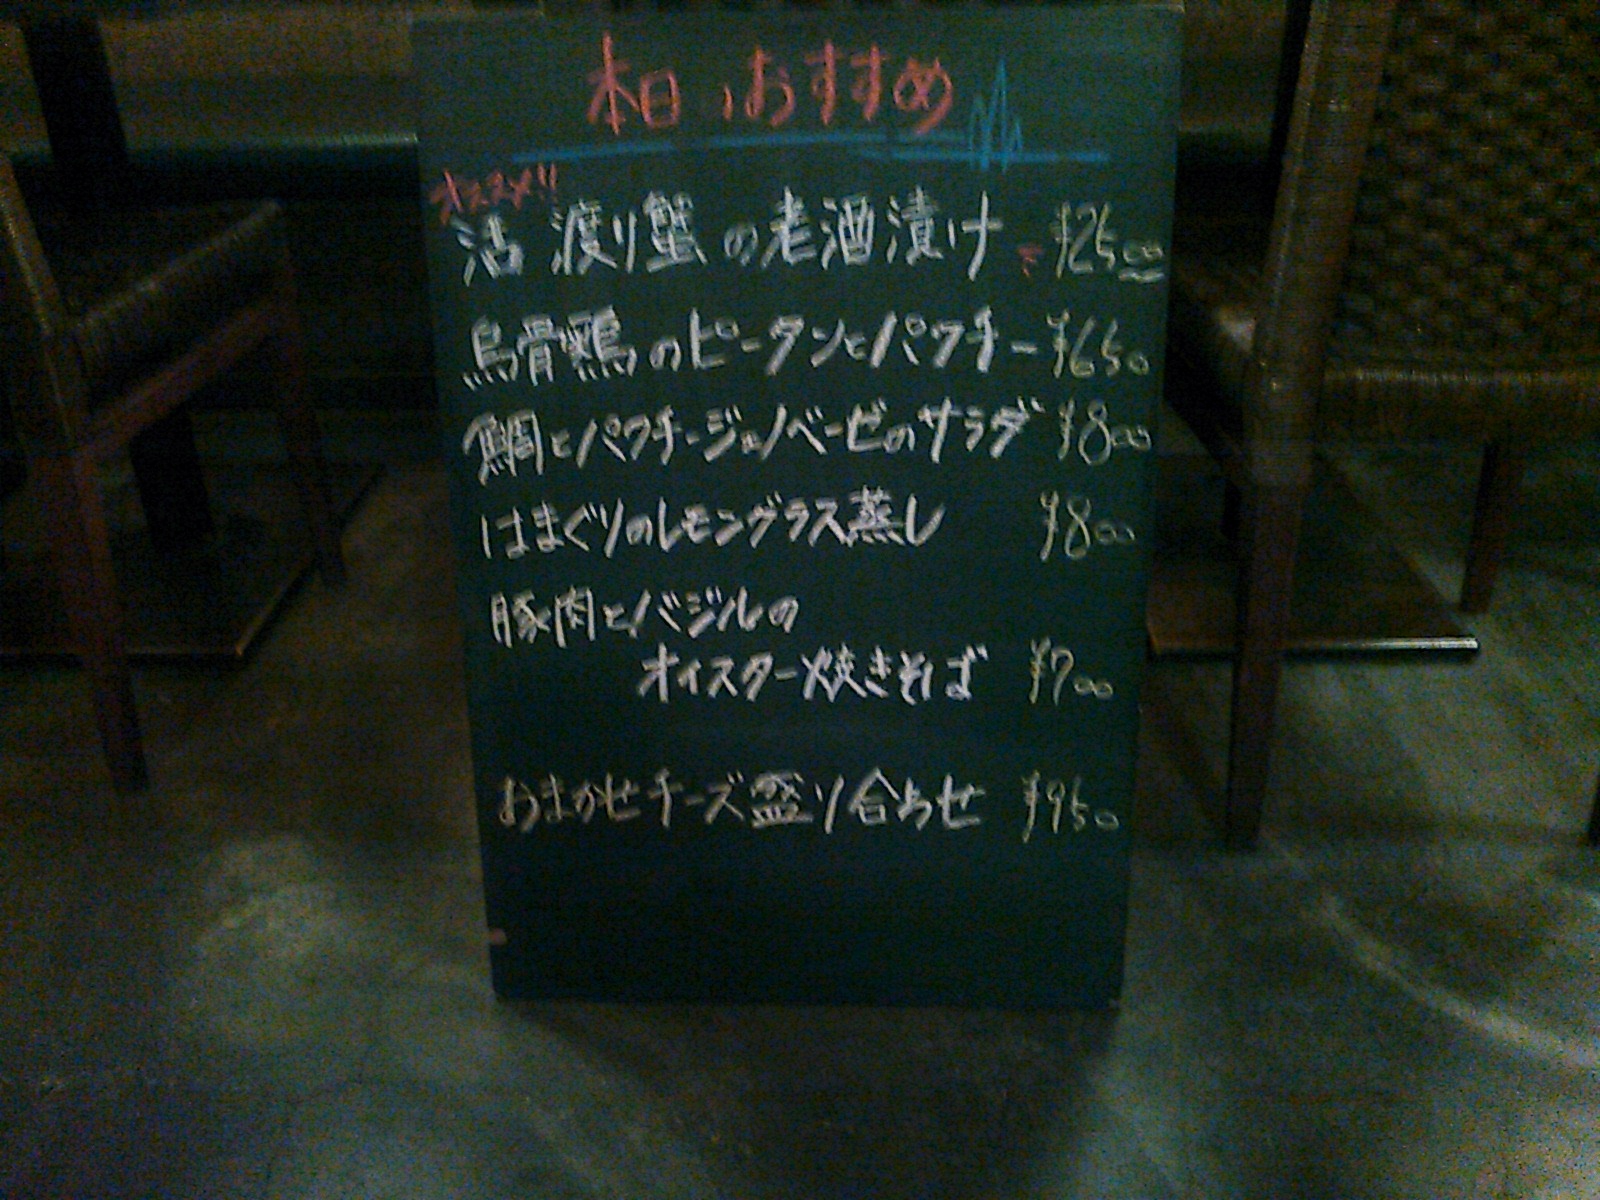 本日のおすすめ
オススメ!!
活 渡り蟹の老酒漬け ¥2500
烏骨鶏のピータンとパクチー ¥650
鯛とパクチージェノベーゼのサラダ ¥800
はまぐりのレモングラス蒸し ¥800
豚肉とバジルの
オイスター焼きそば ¥700
おまかせチーズ盛り合わせ ¥950